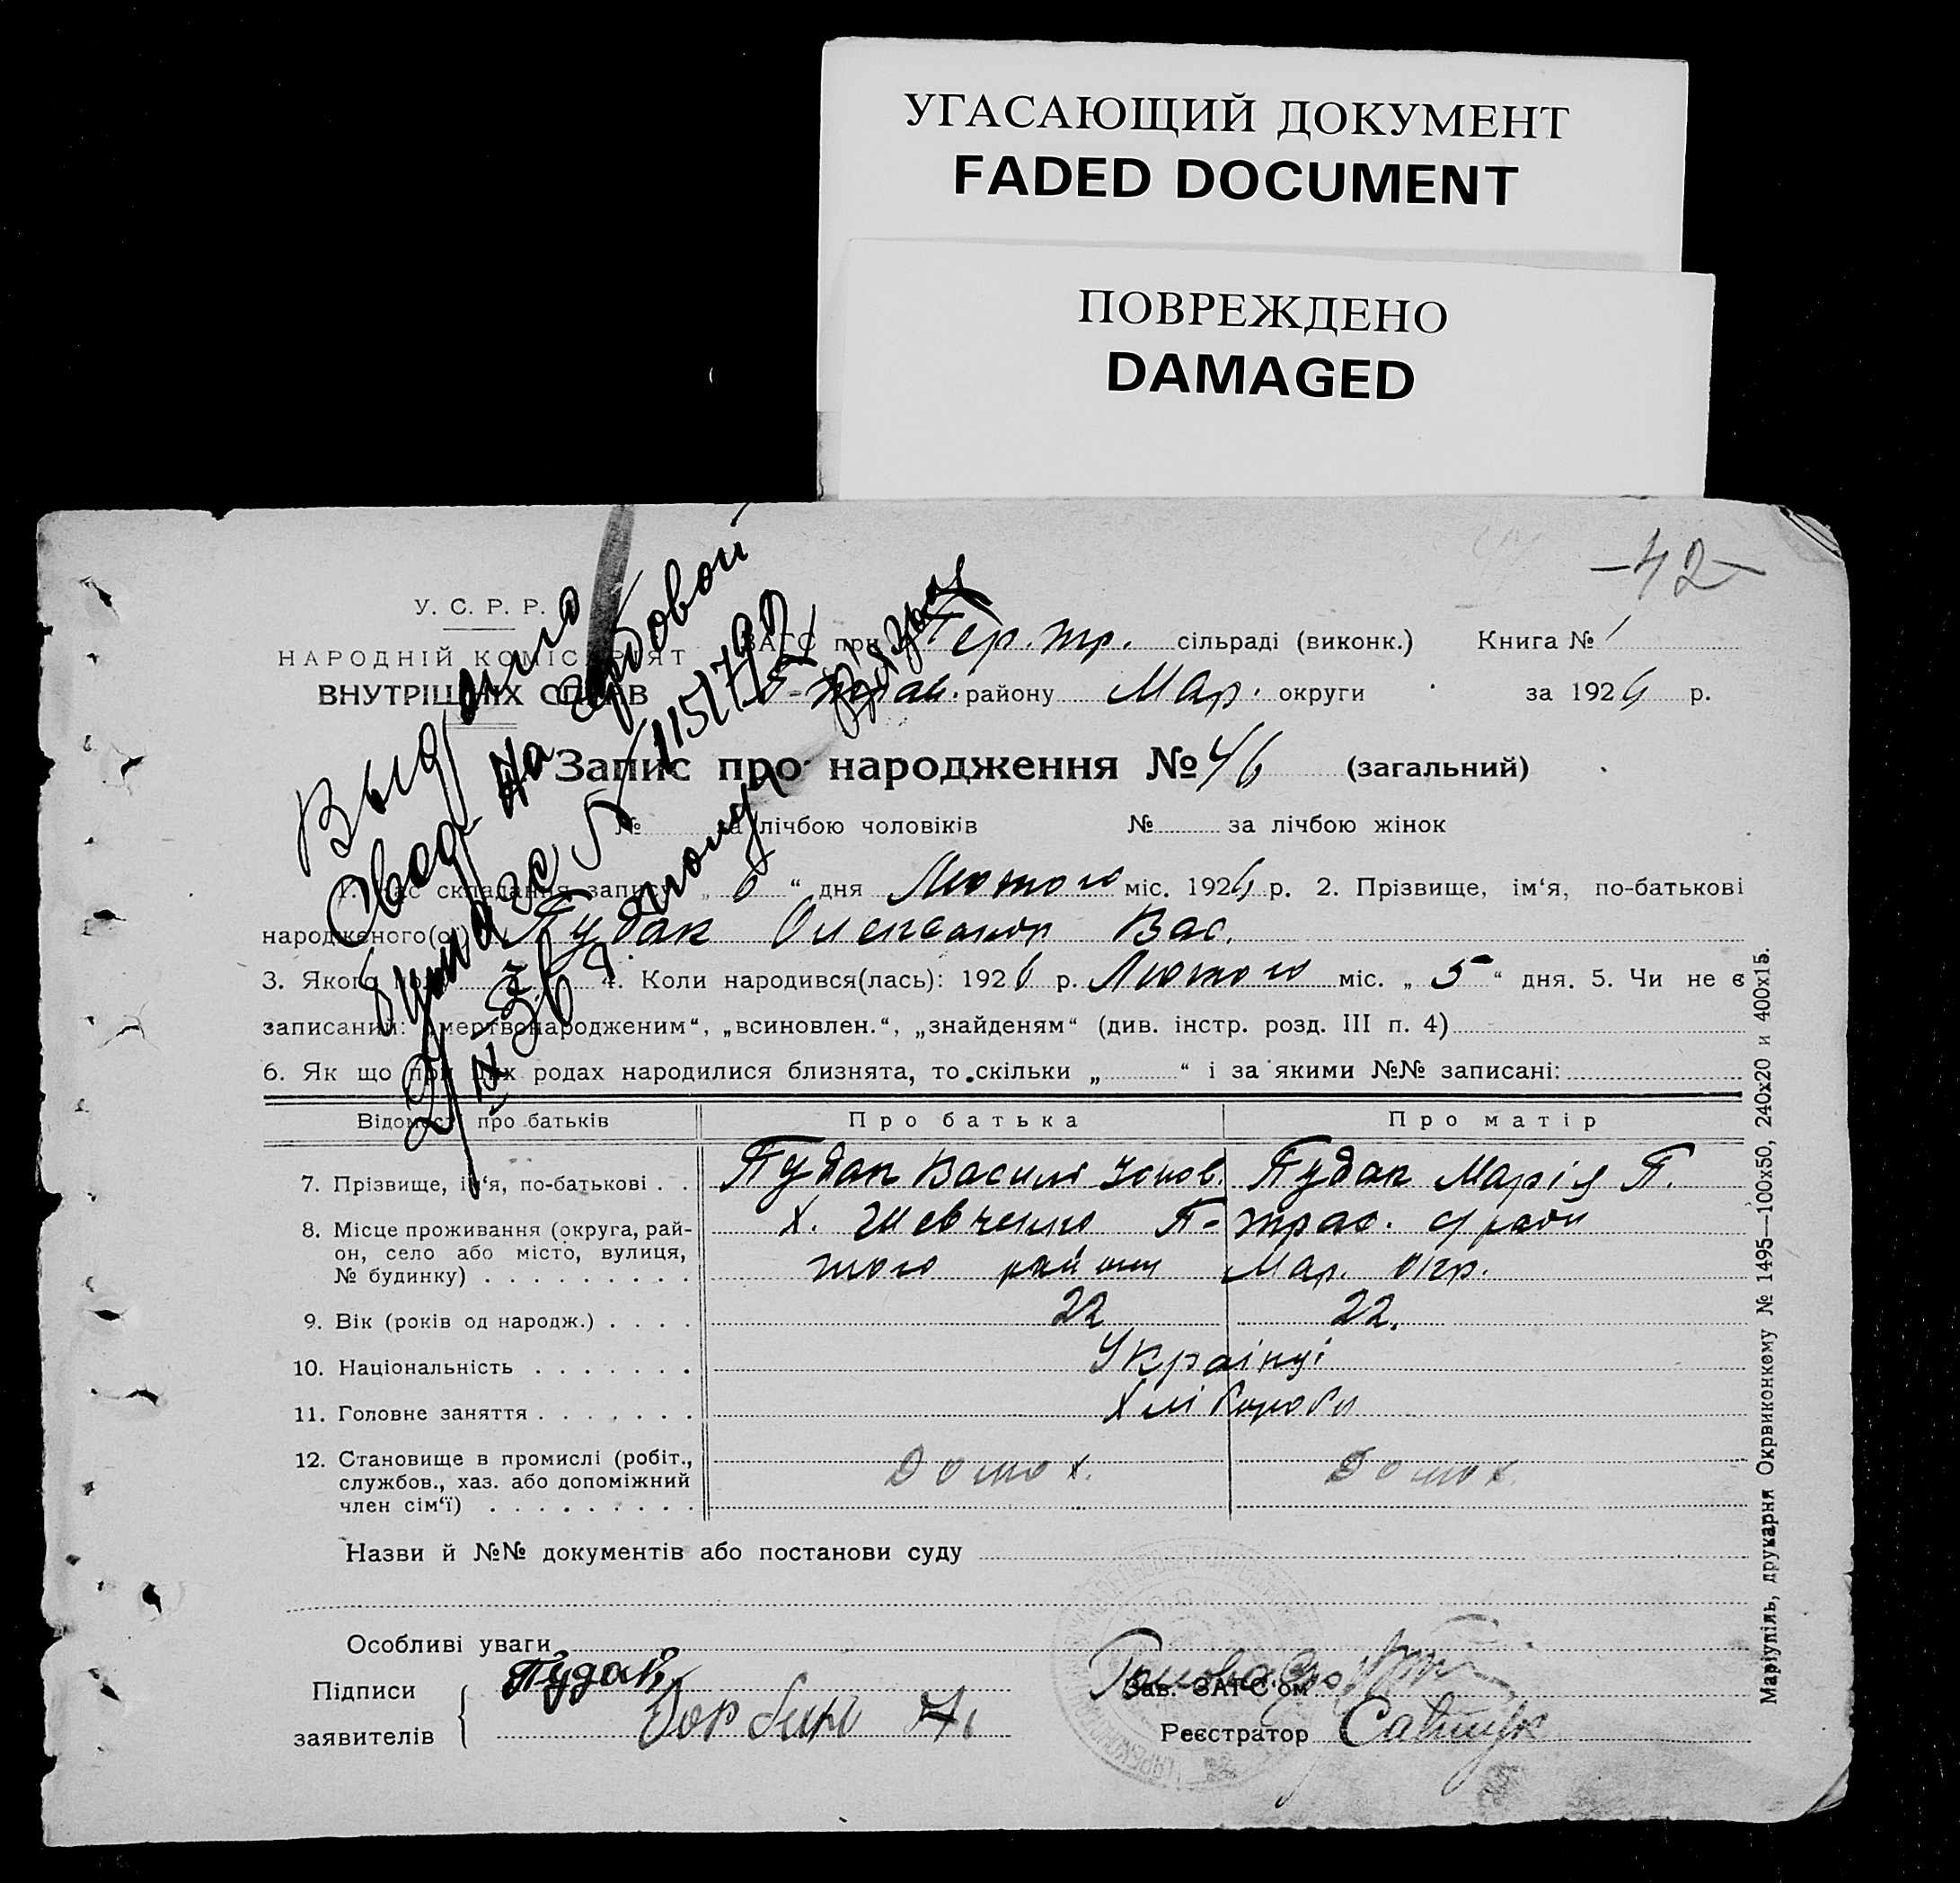 УГАСАЮЩИЙ ДОКУМЕНТ
FADED DOCUMENT
ПОВРЕЖДЕНО
DAMAGED
-42-
У. С. Р. Р.
НАРОДНІЙ КОМІСАРІЯТ
ВНУТРІШНІХ СПРАВ
ЗАГС при Пер. тр. сільраді (виконк.) Книга № 1
району Мар. округи за 1926 р.
Запис про народження № 46 (загальний)
№ за лічбою чоловіків № за лічбою жінок
1. Час складання запису „ 6 “ дня Лютого міс. 1926 р. 2. Прізвище, ім‘я, по-батькові
народженого(ої) Пудак Олександр Вас.
3. Якого полу ч. 4. Коли народився(лась): 1926 р. Лютого міс. „ 5 “ дня. 5. Чи не є
записаний: „мертвонародженим“, „всиновлен.“, „знайденям“ (див. інстр. розд. III п. 4)
6. Як що при цих родах народилися близнята, то скільки „ “ і за якими №№ записані:
Відомості про батьків Про батька Про матір
7. Прізвище, ім‘я, по-батькові . . Пудак Василь Пудак Марія П.
8. Місце проживання (округа, рай- Х. Шевченко П- трас. с/ ради
он, село або місто, вулиця,
№ будинку) . . . . . . . . . того району Мар. окр.
9. Вік (років од народж.) . . . . 22 22.
10. Національність . . . . . . . Українці
11. Головне заняття . . . . . . . Хлібороби
12. Становище в промислі (робіт.,
службов., хаз. або допоміжний Домох. Домох.
член сім‘ї) . . . . . . . . .
Назви й №№ документів або постанови суду
Особливі уваги
Підписи Пудак Зав. ЗАГС‘ом
заявителів Реєстратор
Маріупіль, друкарня Окрвиконкому № 1495—100х50, 240х20 и 400х15.
Выдано
Свод. на гербовой